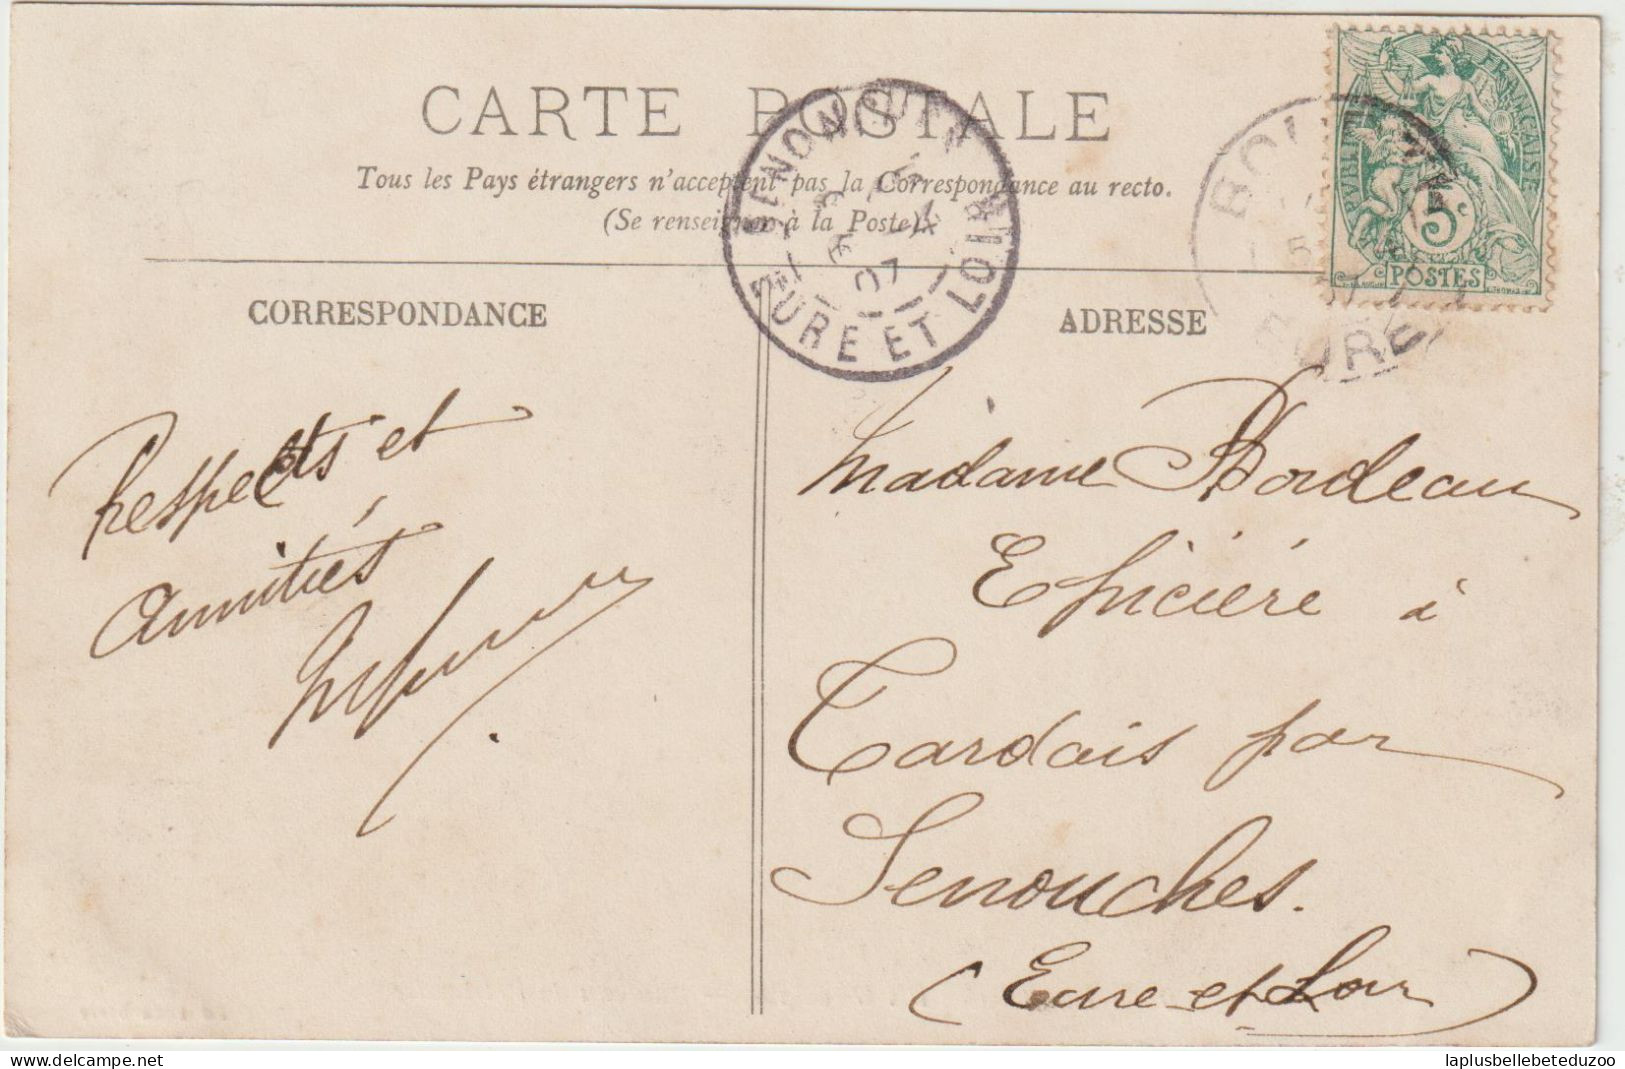 CARTE POSTALE
Tous les Pays étrangers n'acceptent pas la Correspondance au recto.
(Se renseigner à la Poste)
EURE ET LOIR
07
RÉPUBLIQUE FRANÇAISE
5c
POSTES
EURE
CORRESPONDANCE
ADRESSE
Respects et
Amitiés
Madame Bordeau
Epicière à
Tardais par
Senouches.
(Eure et Loir)
www.delcampe.net
laplusbellebeteduzoo